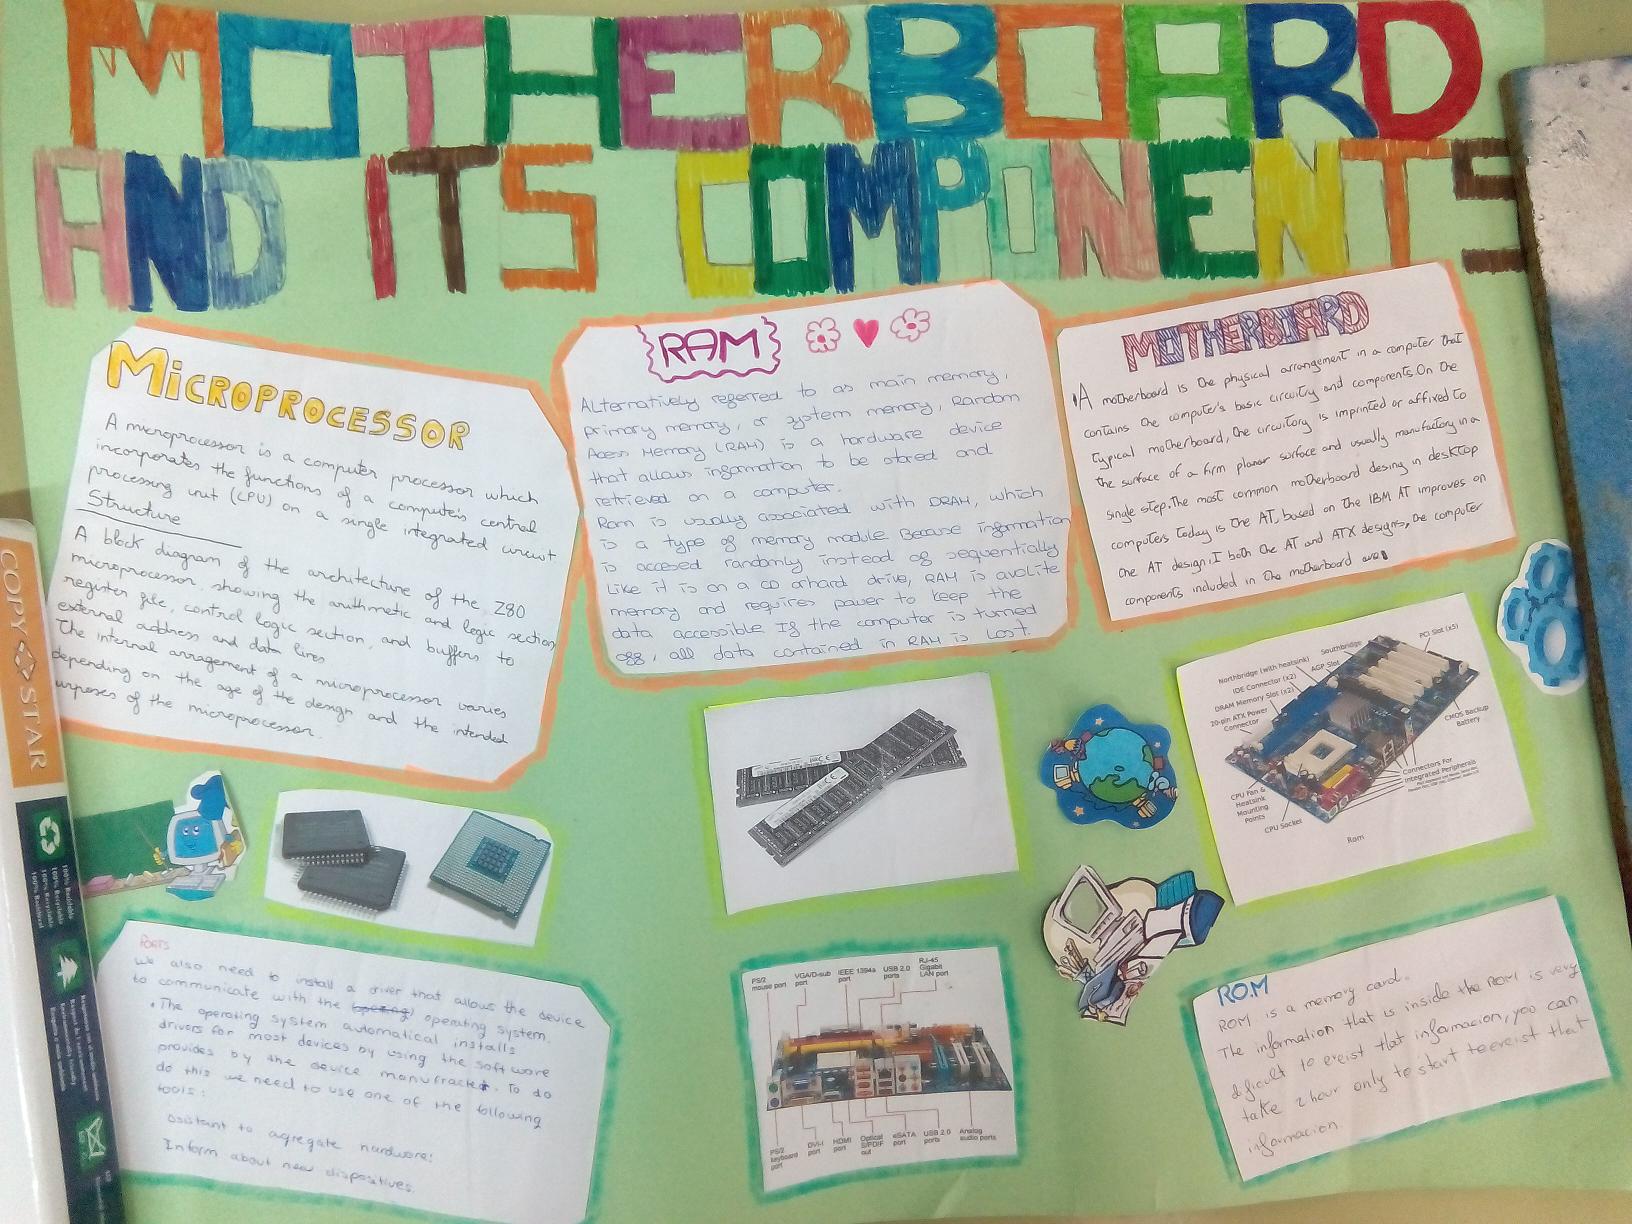 MOTHERBOARD
AND ITS COMPONENTS
MICROPROCESSOR
A microprocessor is a computer processor which
incorporates the functions of a computer's central
processing unit (CPU) on a single integrated circuit.
Structure
A block diagram of the architecture of the Z80
microprocessor, showing the arithmetic and logic section
register file, control logic section, and buffers to
external address and data lines
The internal arragement of a microprocessor varies
depending on the age of the design and the intended
urposes of the microprocessor.
RAM
Alternatively referred to as main memory,
primary memory, or system memory, Random
Acess Memory (RAM) is a hardware device
that allows information to be stored and
retrieved on a computer.
Ram is usually associated with DRAM, which
is a type of memory module Because information
is accesed randomly instead of sequentially
Like it is on a CD orhard drive, RAM is avolite
memory and requires power to keep the
data accessible If the computer is turned
off, all data contained in RAM is Lost.
MOTHERBOARD
A motherboard is the physical arrangement in a computer that
contains the computer's basic circuitry and components. On the
typical motherboard, the circuitory is imprinted or affixed to
the surface of a firm planar surface and usually manufactory in a
single step. The most common motherboard desing in desktop
computers today is the AT, based on the IBM AT improves on
the AT design, I both the AT and ATX designs, the computer
components included in the motherboard are
Northbridge (with heatsink)
Southbridge
PCI Slot (x5)
IDE Connector (x2)
AGP Slot
DRAM Memory Slot (x2)
20-pin ATX Power
Connector
CMOS Backup
Battery
Connectors For
Integrated Peripherals
CPU Fan &
Heatsink
Mounting
Points
CPU Socket
Rom
PORTS
We also need to install a driver that allows the device
to communicate with the operating system.
• The operating system automatical installs
drivers for most devices by using the software
provides by the device manufracter. To do
do this we need to use one of the following
tools:
assistant to agregate hardware!
Inform about new dispositives.
PS/2
mouse port
VGA/D-sub
port
IEEE 1394a
port
USB 2.0
ports
RJ-45
Gigabit
LAN port
PS/2
keyboard
port
DVI-I
port
HDMI
port
Optical
S/PDIF
out
eSATA
port
USB 2.0
ports
Analog
audio ports
ROM
ROM is a memory card.
The information that is inside the ROM is very
dificult to ereist that infornacion, you can
take 2 hour only to start to ereist that
informacion.
COPY STAR
100% Recyclable